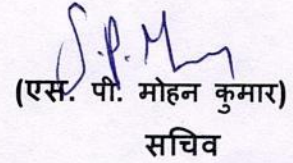 S.P.M
(एस. पी. मोहन कुमार)
सचिव